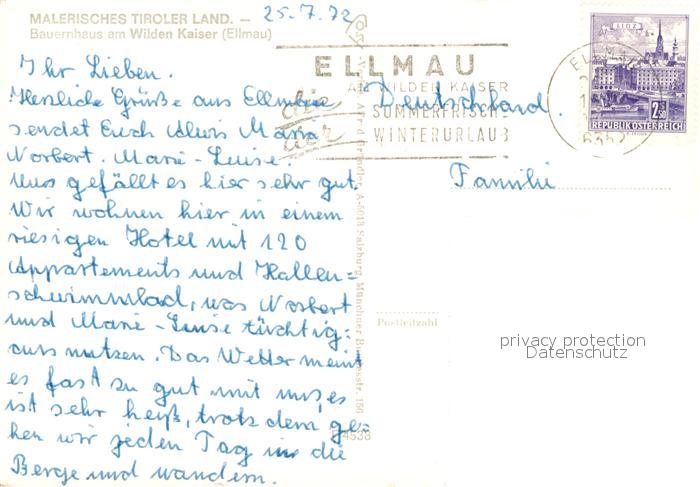 MALERISCHES TIROLER LAND. –
Bauernhaus am Wilden Kaiser (Ellmau)
25.7.72
Ihr Lieben.
Herzliche Grüße aus Ellmau
sendet Euch Alwis Maria
Norbert. Marie-Luise.
Uns gefällt es hier sehr gut.
Wir wohnen hier in einem
riesigen Hotel mit 120
Appartements und Hallen=
schwimmbad, was Norbert
und Marie-Luise tüchtig
ausnutzen. Das Wetter meint
es fast zu gut mit uns, es
ist sehr heiß, trotzdem ge=
hen wir jeden Tag in die
Berge und wandern.
ELLMAU
AM WILDEN KAISER
SOMMERFRISCHE
WINTERURLAUB
Deutschland.
Familie
LINZ
2.50
REPUBLIK ÖSTERREICH
ELLMAU
6352
A-5013 Salzburg, Münchner Bundesstr. 156
Postleitzahl
4538
privacy protection
Datenschutz